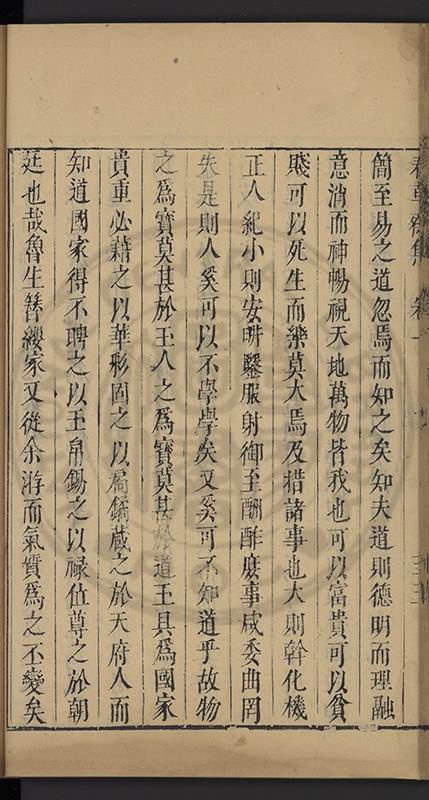 簡至易之道忽焉而知之矣知夫道則德明而理融
意消而神暢視天地萬物皆我也可以富貴可以貧
賤可以死生而樂莫大焉及措諸事也大則斡化機
正人紀小則安畊鑿服射御至酬酢庶事咸委曲罔
失是則人奚可以不學學矣又奚可不知道乎故物
之為寶莫甚於玉人之為寶莫甚於道玉具為國家
貴重必藉之以華彩固之以扃鐍蔵之於天府人而
知道國家得不聘之以玉帛錫之以祿位尊之於朝
廷也哉魯生簪纓家又從余游而氣質為之丕變矣